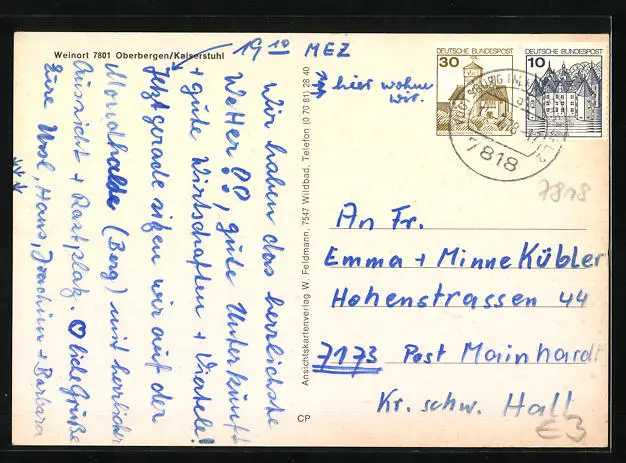 Weinort 7801 Oberbergen/Kaiserstuhl
19 10 MEZ
hier wohne
wir.
Wir haben das herrlichste
Wetter!, gute Unterkunft
+ gute Wirtschaften + Viertele!
Jetzt gerade sitzen wir auf der
Mondhalde (Berg) mit herrlicher
Aussicht + Rastplatz. liebe Grüße
Eure Urol, Hans, Joachim + Barbara
Ansichtskartenverlag W. Feldmann, 7547 Wildbad, Telefon (0 70 81) 28 40
CP
DEUTSCHE BUNDESPOST
30
DEUTSCHE BUNDESPOST
10
7818
7818
An Fr.
Emma + Minne Kübler
Hohenstrassen 44
7173 Post Mainhardt
Kr. schw. Hall
€3